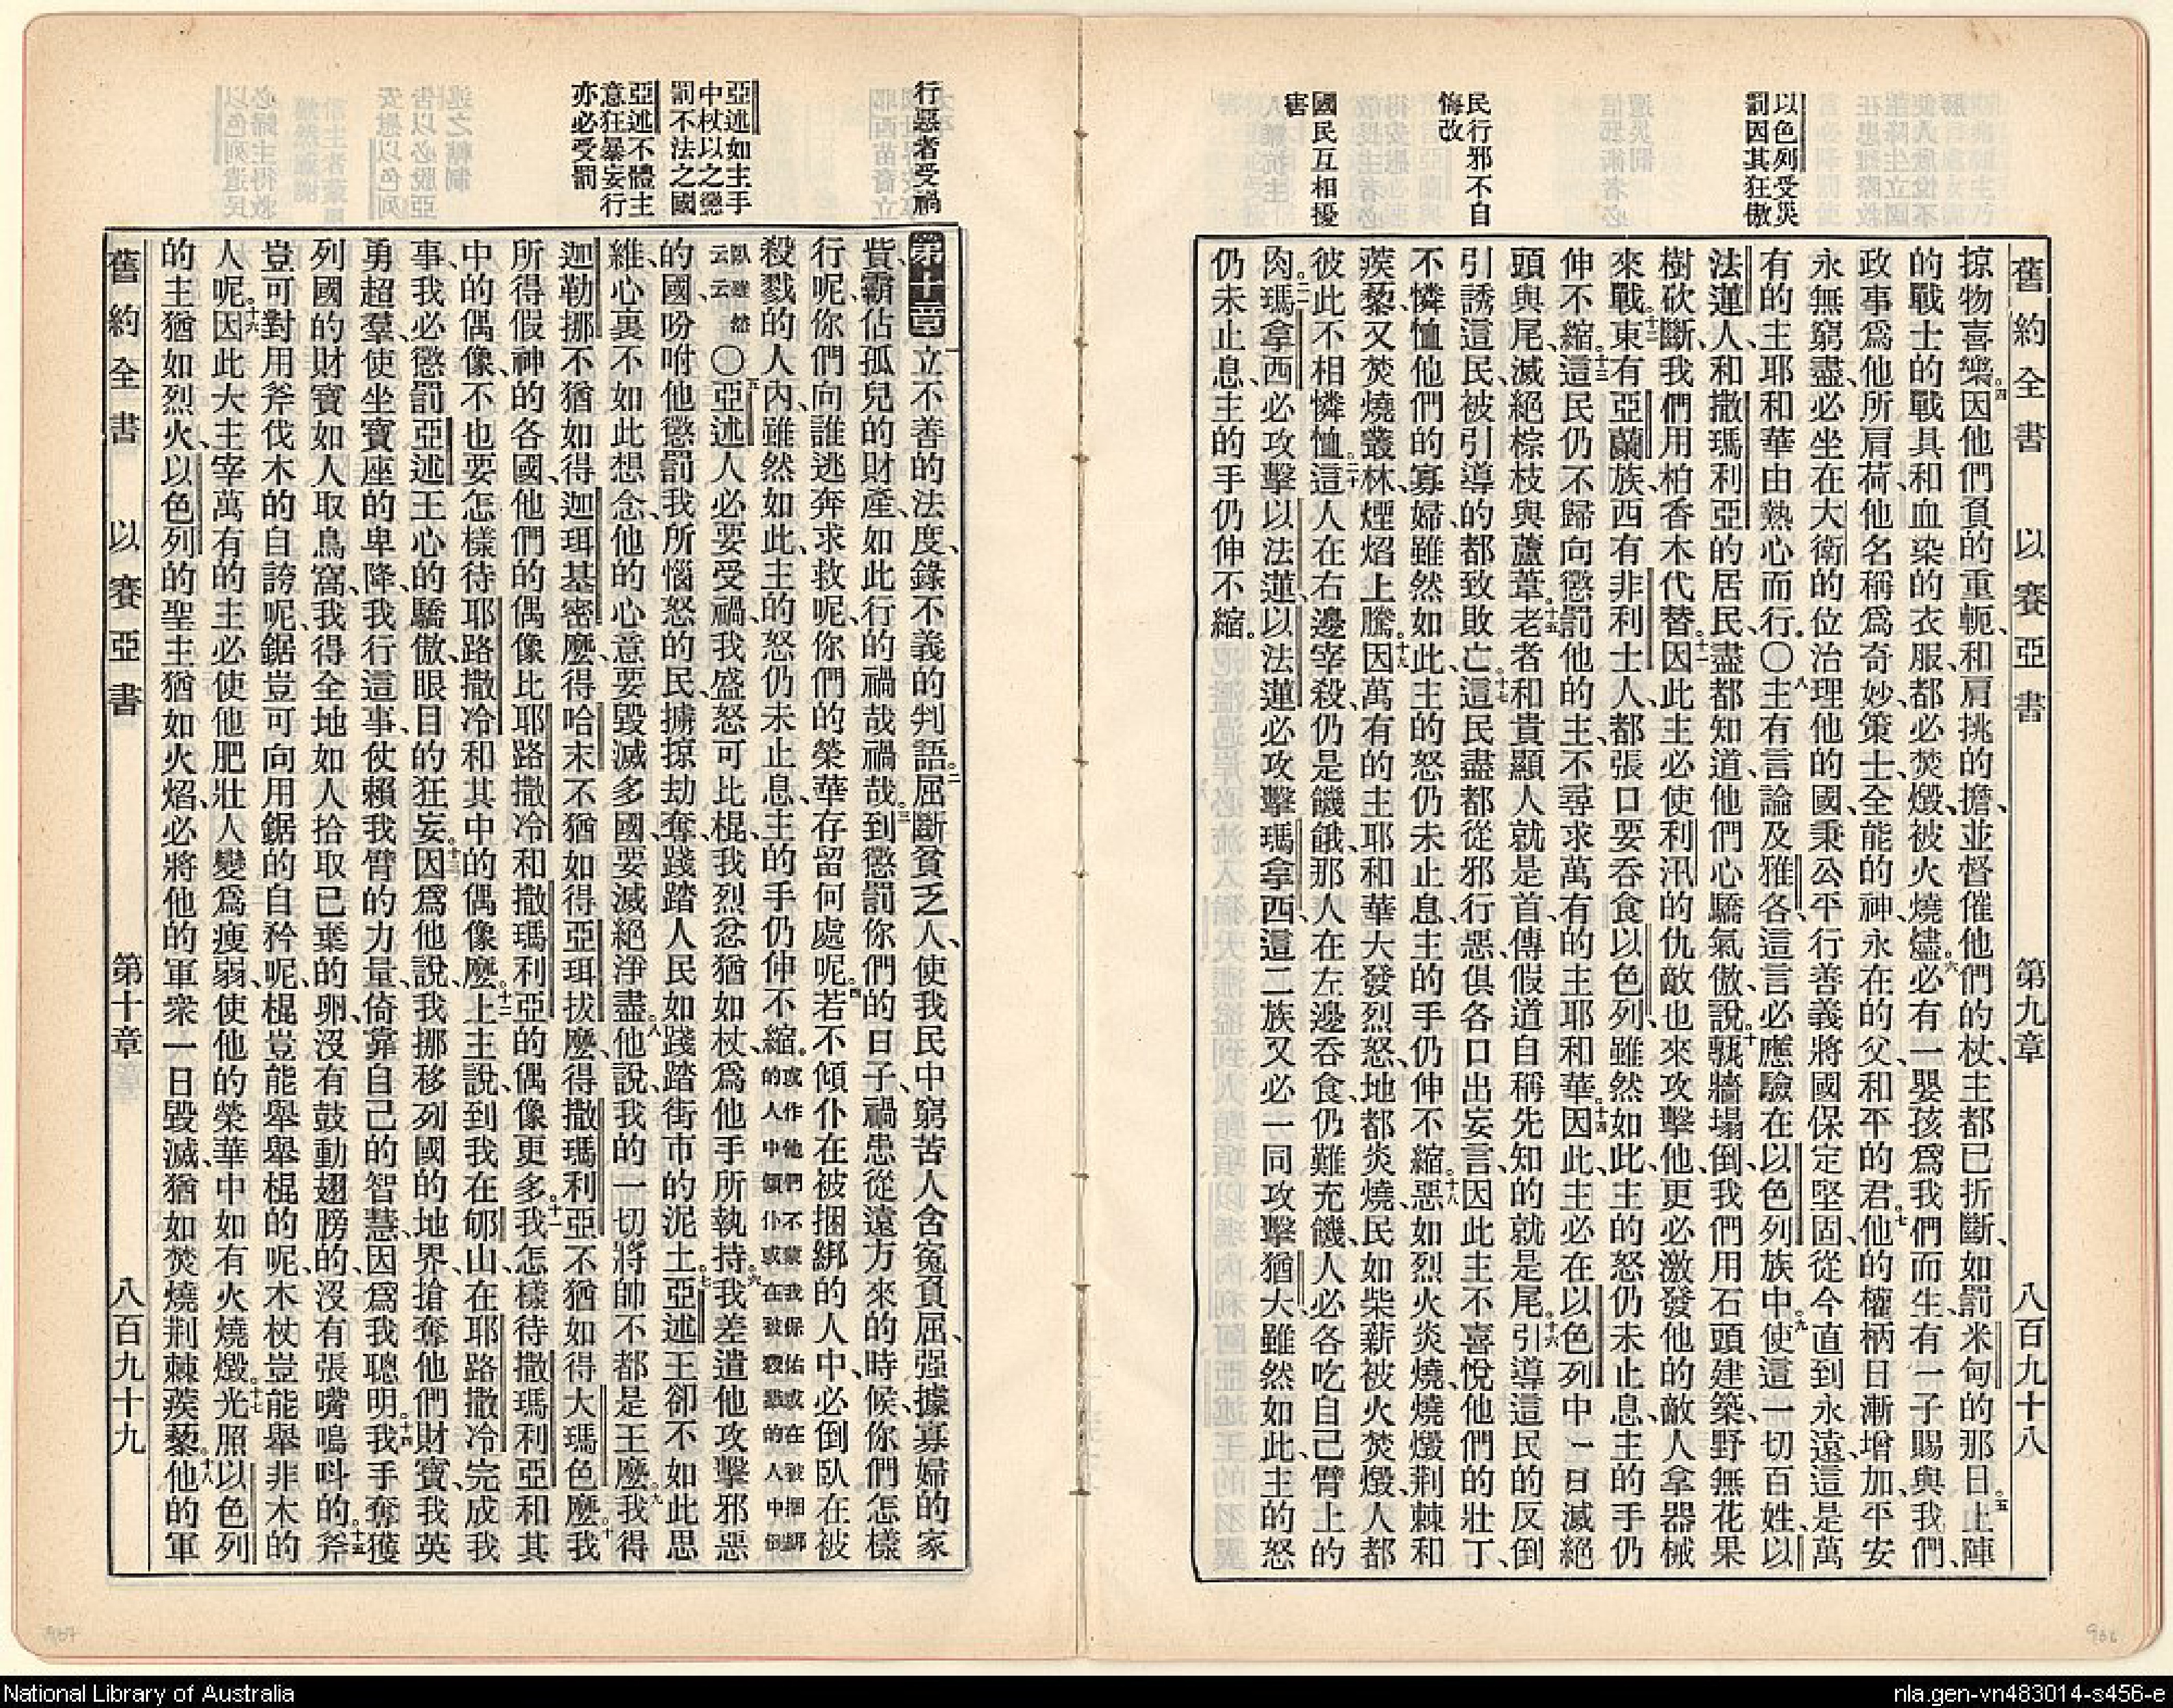 舊約全書 以賽亞書 第九章 八百九十八
以色列受災
罰因其狂傲
民行邪不自
悔改
國民互相擾
害
掠物喜樂。四因他們負的重軛、和肩挑的擔、並督催他們的杖、主都已折斷、如罰米甸的那日。五上陣
的戰士的戰具、和血染的衣服、都必焚燬、被火燒燼。六必有一嬰孩爲我們而生、有一子賜與我們、
政事爲他所肩荷、他名稱爲奇妙、策士、全能的神、永在的父、和平的君。七他的權柄日漸增加、平安
永無窮盡、必坐在大衛的位、治理他的國、秉公平、行善義、將國保定堅固、從今直到永遠、這是萬
有的主耶和華由熱心而行。〇八主有言論及雅各、這言必應驗在以色列族中。九使這一切百姓、以
法蓮人、和撒瑪利亞的居民、盡都知道、他們心驕氣傲、說、十甎牆塌倒、我們用石頭建築、野無花果
樹砍斷、我們用柏香木代替。十一因此主必使利汛的仇敵也來攻擊他、更必激發他的敵人拿器械
來戰。十二東有亞蘭族、西有非利士人、都張口要吞食以色列、雖然如此、主的怒仍未止息、主的手仍
伸不縮。十三這民仍不歸向懲罰他的主、不尋求萬有的主耶和華。十四因此、主必在以色列中一日滅絕
頭與尾、滅絕棕枝與蘆葦。十五老者和貴顯人就是首、傳假道自稱先知的就是尾。十六引導這民的反倒
引誘這民、被引導的都致敗亡。十七這民盡都從邪行惡、俱各口出妄言、因此主不喜悅他們的壯丁、
不憐恤他們的寡婦、雖然如此、主的怒仍未止息、主的手仍伸不縮。十八惡如烈火炎燒、燒燬荆棘和
蒺藜、又焚燒叢林、煙焰上騰。十九因萬有的主耶和華大發烈怒、地都炎燒、民如柴薪被火焚燬、人都
彼此不相憐恤。二十這人在右邊宰殺仍是饑餓、那人在左邊吞食仍難充饑、人必各吃自己臂上的
肉。二一瑪拿西必攻擊以法蓮、以法蓮必攻擊瑪拿西、這二族又必一同攻擊猶大、雖然如此、主的怒
仍未止息、主的手仍伸不縮。
行惡者受禍
亞述如主手
中杖以之懲
罰不法之國
亞述不體主
意狂暴妄行
亦必受罰
第十章 一立不善的法度、錄不義的判語。二屈斷貧乏人、使我民中窮苦人含冤負屈、强據寡婦的家
貲、霸佔孤兒的財產、如此行的禍哉禍哉。三到懲罰你們的日子、禍患從遠方來的時候、你們怎樣
行呢、你們向誰逃奔求救呢、你們的榮華存留何處呢。四若不傾仆在被捆綁的人中、必倒臥在被
殺戮的人內、雖然如此、主的怒仍未止息、主的手仍伸不縮。或作他們不蒙我保佑或在被捆綁的人中傾仆或在被殺戮的人中倒
臥雖然云云 〇五亞述人必要受禍、我盛怒可比棍、我烈忿猶如杖、爲他手所執持。六我差遣他攻擊邪惡
的國、吩咐他懲罰我所惱怒的民、擄掠劫奪、踐踏人民如踐踏街市的泥土。七亞述王卻不如此思
維、心裏不如此想念、他的心意要毀滅多國、要滅絕淨盡。八他說、我的一切將帥不都是王麽。九我得
迦勒挪不猶如得迦珥基密麽、得哈末不猶如得亞珥拔麽、得撒瑪利亞不猶如得大瑪色麽。十我
所得假神的各國、他們的偶像比耶路撒冷和撒瑪利亞的偶像更多、十一我怎樣待撒瑪利亞和其
中的偶像、不也要怎樣待耶路撒冷和其中的偶像麽。十二上主說、到我在郇山在耶路撒冷完成我
事、我必懲罰亞述王心的驕傲、眼目的狂妄。十三因爲他說、我挪移列國的地界、搶奪他們財寶、我英
勇超羣、使坐寶座的卑降、我行這事、仗賴我臂的力量、倚靠自己的智慧、因爲我聰明。十四我手奪獲
列國的財寶、如人取鳥窩、我得全地如人拾取已棄的卵、沒有鼓動翅膀的、沒有張嘴鳴呌的。十五斧
豈可對用斧伐木的自誇呢、鋸豈可向用鋸的自矜呢、棍豈能舉舉棍的呢、木杖豈能舉非木的
人呢。十六因此大主宰萬有的主必使他肥壯人變爲瘦弱、使他的榮華中如有火燒燬。十七光照以色列
的主猶如烈火、以色列的聖主猶如火焰、必將他的軍衆一日毀滅、猶如焚燒荆棘蒺藜。十八他的軍
舊約全書 以賽亞書 第十章 八百九十九
National Library of Australia
nla.gen-vn483014-s456-e